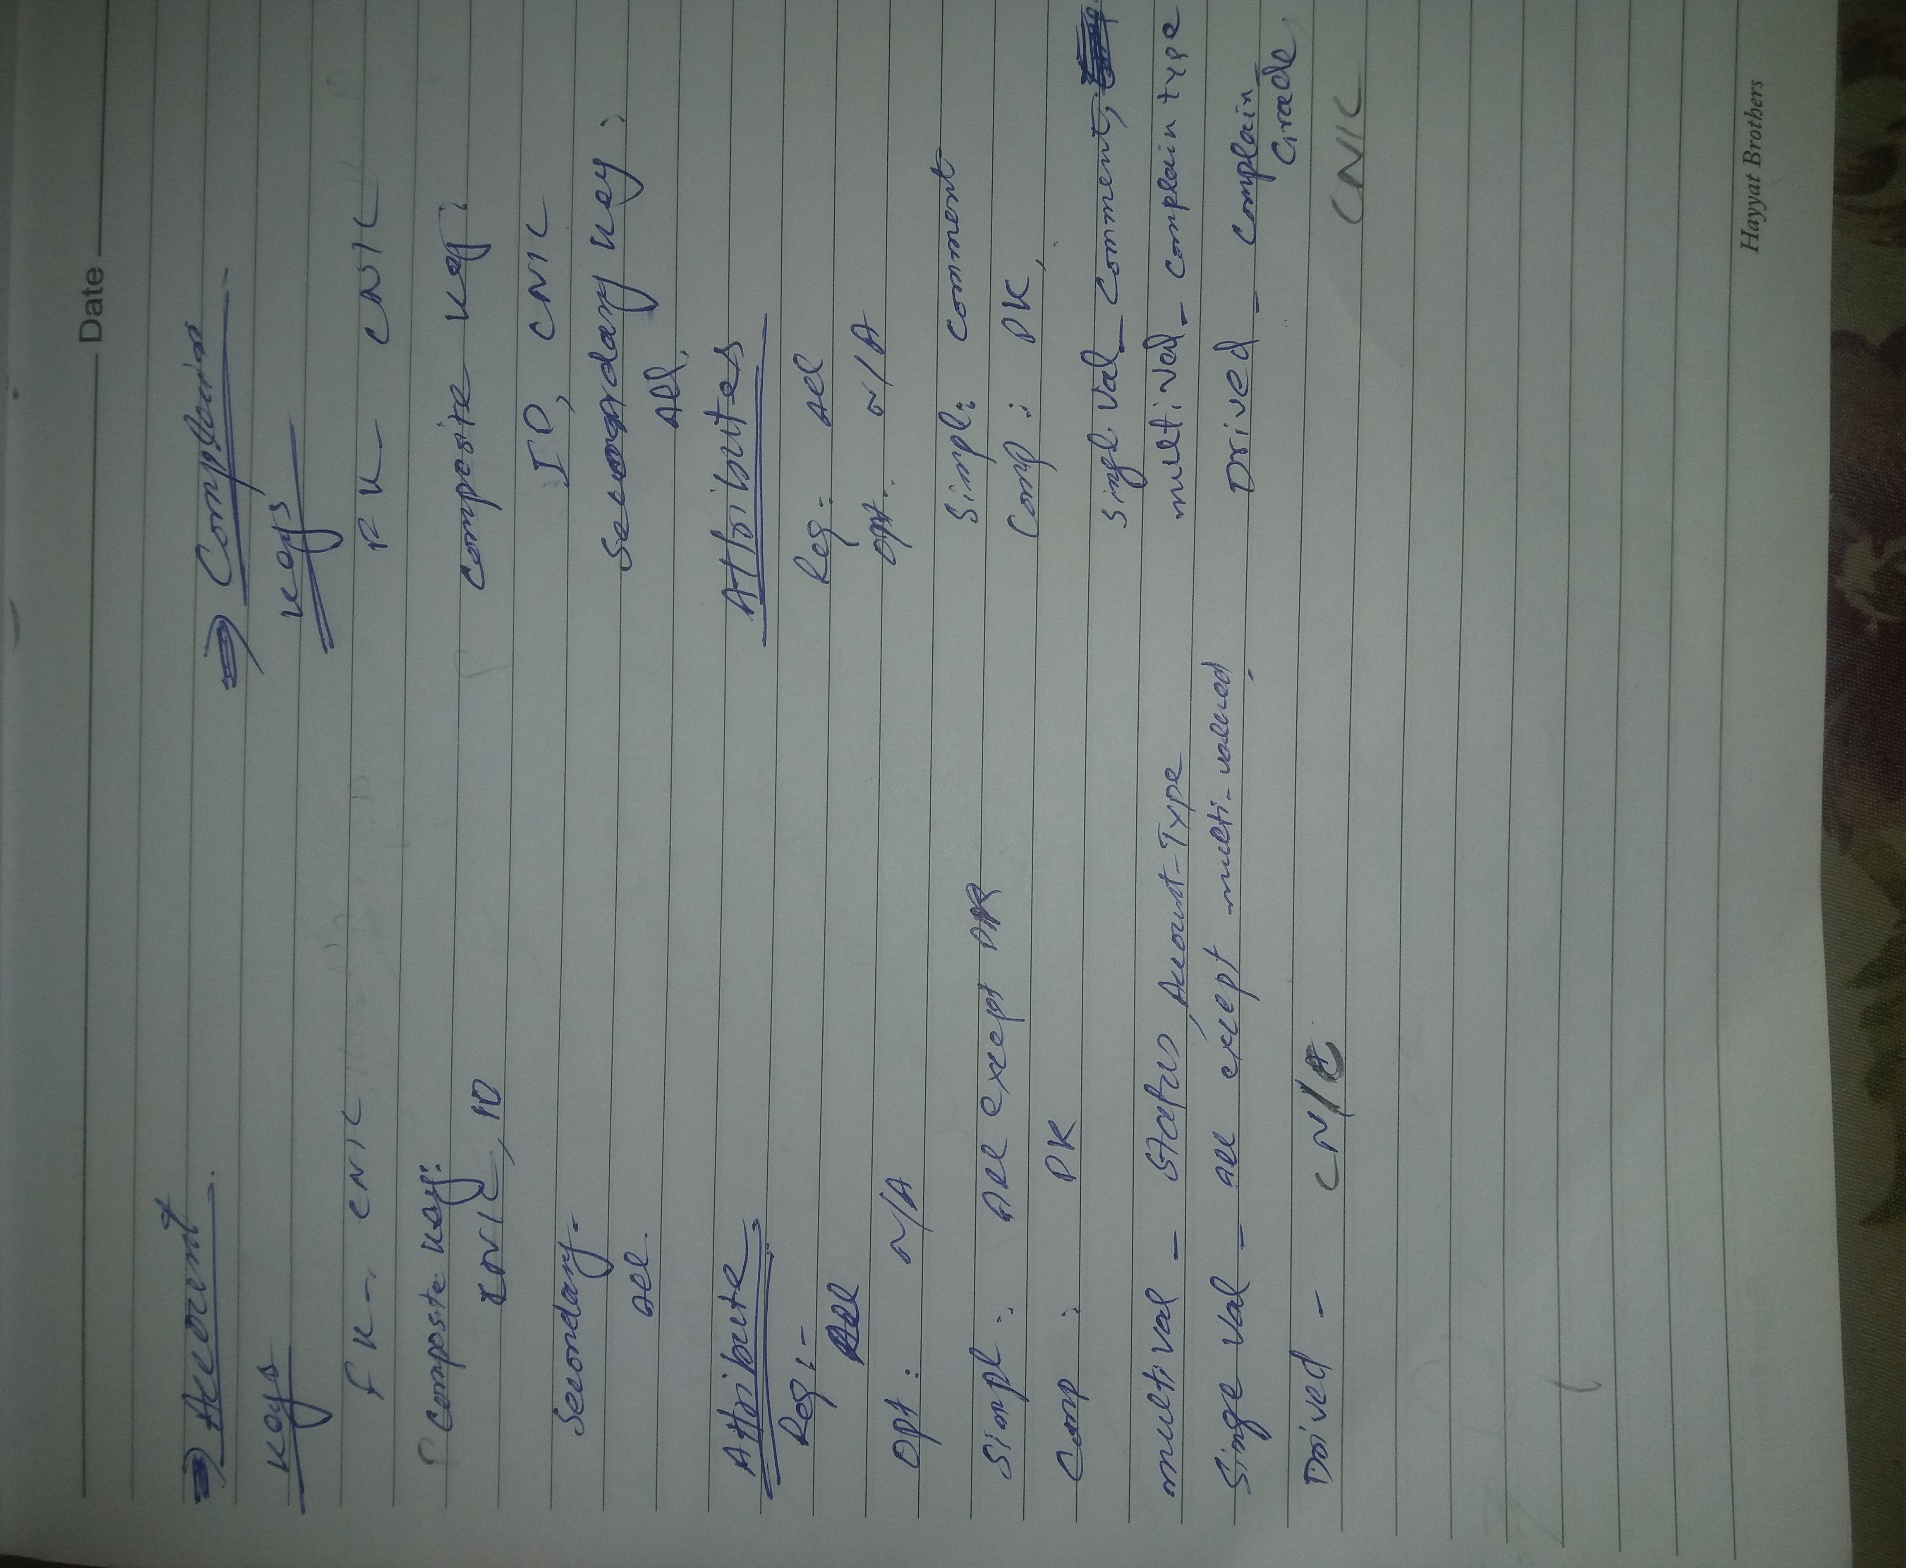 Date
⇒ Account.
Keys
FK - CNIC
Composite Key:
CNIC, ID
Secondary -
All.
Attribute
Req :-
All
Opt : N/A
Simpl : All except PK
Comp : PK
multival - Status, Account-Type
Singe Val - all except multi-valued
Drived - CN/C
⇒ Complain
Keys
FK - CNIC
Composite Key:
ID, CNIC
Secondary Key:
All,
Attributes
Req : All
Opt : N/A
Simpl: Comment
Comp : PK,
Singl. Val - Comment,
multival - Complain type
Drived - Complain
Grade,
CNIC
Hayyat Brothers